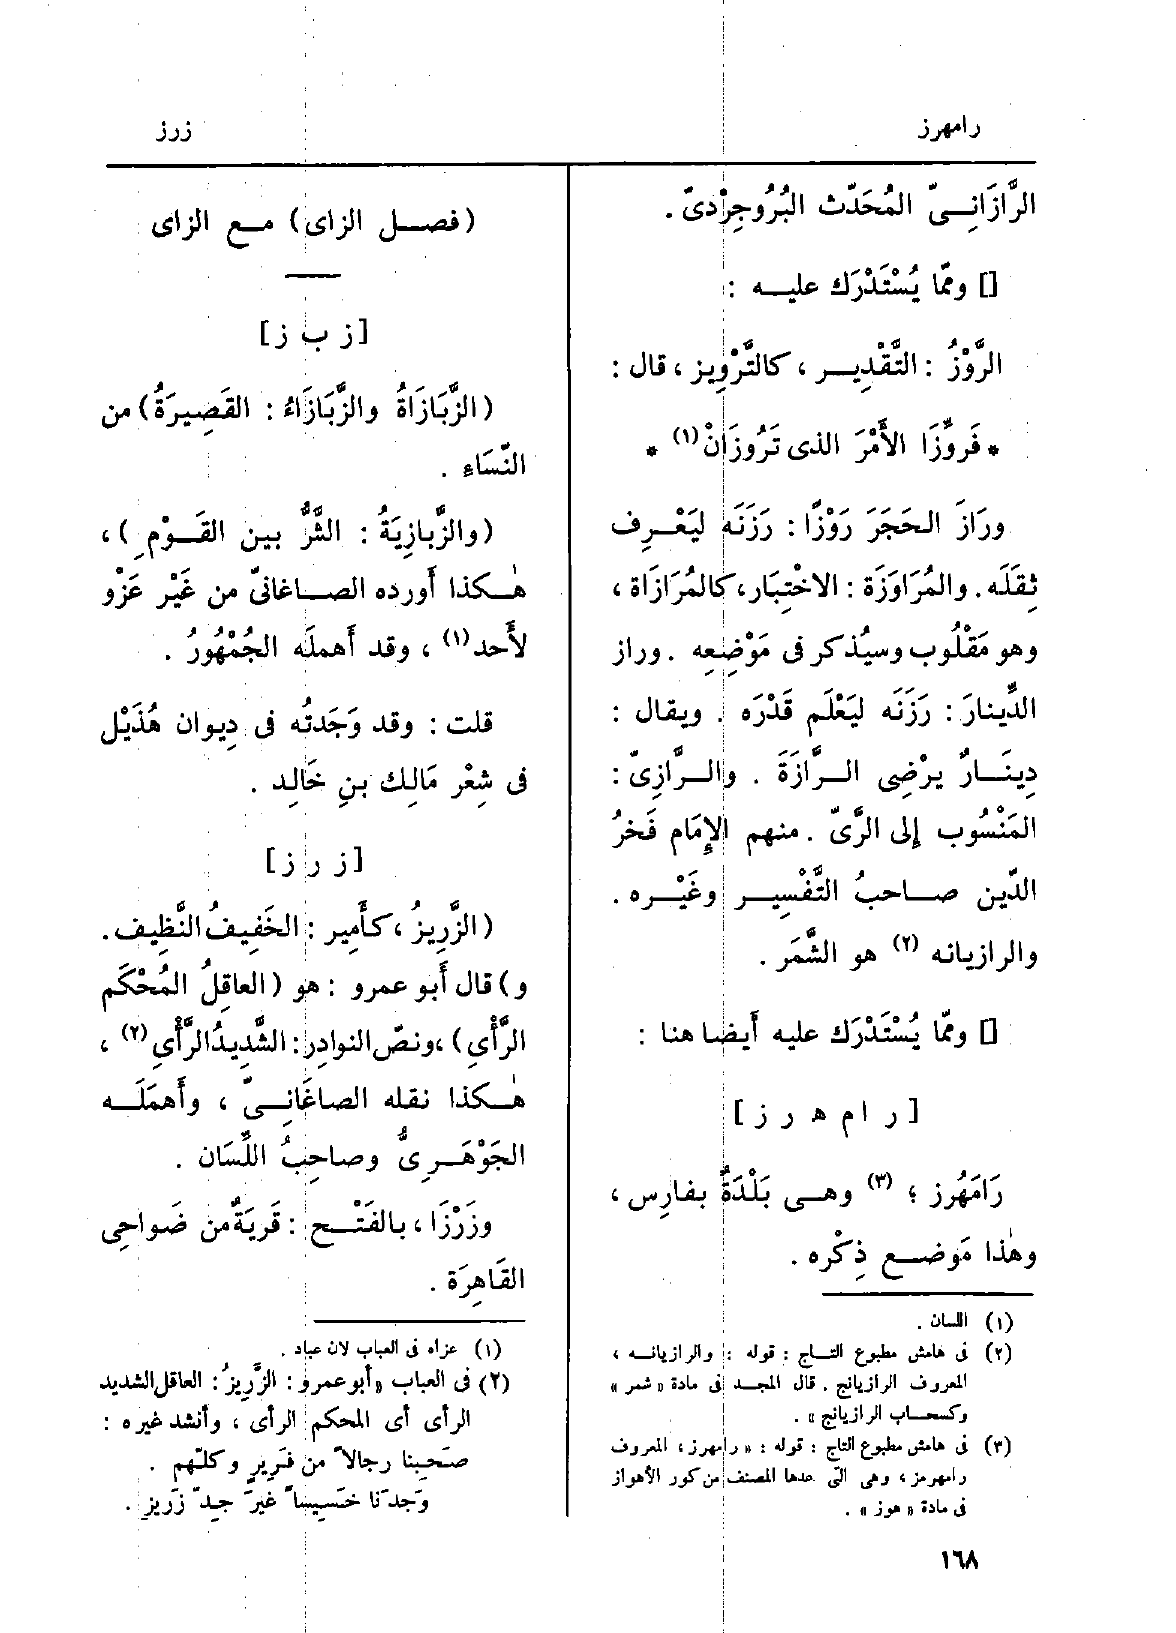 رامهرز
زرز
الرَّازَانِىّ المُحَدّث البُرُوجِرْدىّ .
[] وممّا يُسْتَدْرَك عليه :
الرَّوْزُ : التَّقْدِير ، كالتَّرْوِيز ، قال :
* فَروَّزَا الأَمْرَ الذى تَرُوزَانْ (١) *
ورَازَ الحَجَرَ رَوْزًا : رَزَنَه لِيَعْرِف
ثِقَلَه . والمُرَاوَزَة : الاخْتِبَار ، كالمُرَازَاة ،
وهو مَقْلُوب وسيُذكر فى مَوْضِعِه . وراز
الدِّينارَ : رَزَنَه لِيَعْلَم قَدْرَه . ويقال :
دِينَارٌ يرْضِى الرَّازَةَ . والرَّازِىّ :
المَنْسُوب إلى الرَّىّ . منهم الإِمَام فَخرُ
الدّين صاحبُ التَّفْسِير وغَيْره .
والرازيانه (٢) هو الشَّمَر .
[] وممّا يُسْتَدْرَك عليه أَيضا هنا :
[ ر ا م ه ر ز ]
رَامَهُرز ؛ (٣) وهى بَلْدَةٌ بفارِس ،
وهٰذا مَوضع ذِكْره .
(١) اللسان .
(٢) فى هامش مطبوع التاج : قوله : والرازيانه ،
المعروف الرازيانج . قال المجد فى مادة « شمر »
وكسحاب الرازيانج » .
(٣) فى هامش مطبوع التاج : قوله : « رامهرز ، المعروف
رامهرمز ، وهى التى عدها المصنف من كور الأهواز
فى مادة « هوز » .
(فصل الزاى) مع الزاى
[ ز ب ز ]
(الزَّبَازَاةُ والزَّبَازَاءُ : القَصِيرَةُ) من
النّسَاءِ .
(والزَّبازِيَةُ : الشَّرُّ بين القَوْمِ) ،
هٰكذا أَورده الصاغانىّ من غَيْر عَزْو
لأَحد (١) ، وقد أَهملَه الجُمْهُورُ .
قلت : وقد وَجَدتُه فى دِيوان هُذَيْل
فى شِعْر مَالِك بنِ خَالِد .
[ ز ر ز ]
(الزَّرِيزُ ، كأَمِير : الخَفِيفُ النَّظِيف .
و) قال أَبو عمرو : هو (العاقِلُ المُحْكَم
الرَّأْىِ) ، ونصّ النوادِر : الشَّدِيدُ الرَّأْىِ (٢) ،
هٰكذا نقله الصاغَانِىّ ، وأَهملَه
الجَوْهَرِىُّ وصاحِبُ اللِّسَان .
وزَرْزَا ، بالفَتْح : قَريَةٌ من ضَواحِى
القَاهِرَة .
(١) عزاه فى العباب لابن عباد .
(٢) فى العباب « أبو عمرو : الزَّرِيزُ : العاقل الشديد
الرأى أى المحكم الرأى ، وأنشد غيره :
صَحِبنا رجالاً من فَرِيرٍ وكلّهم .
وَجدَنا خَسيساً غيرَ جِدِّ زَرِيزِ .
١٦٨